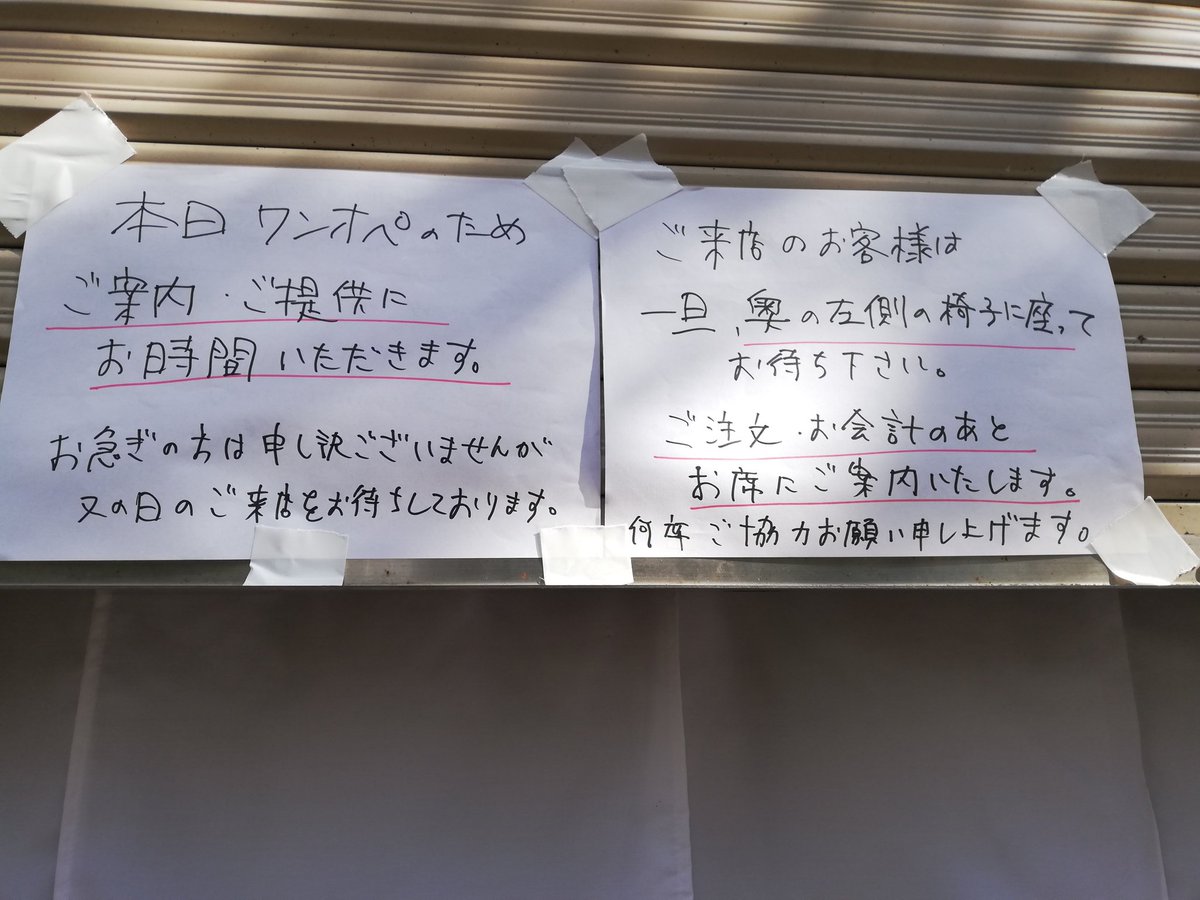 本日 ワンオペのため
ご案内・ご提供に
お時間いただきます。
お急ぎの方は申し訳ございませんが
又の日のご来店をお待ちしております。
ご来店のお客様は
一旦、奥の左側の椅子に座って
お待ち下さい。
ご注文・お会計のあと
お席にご案内いたします。
何卒ご協力お願い申し上げます。